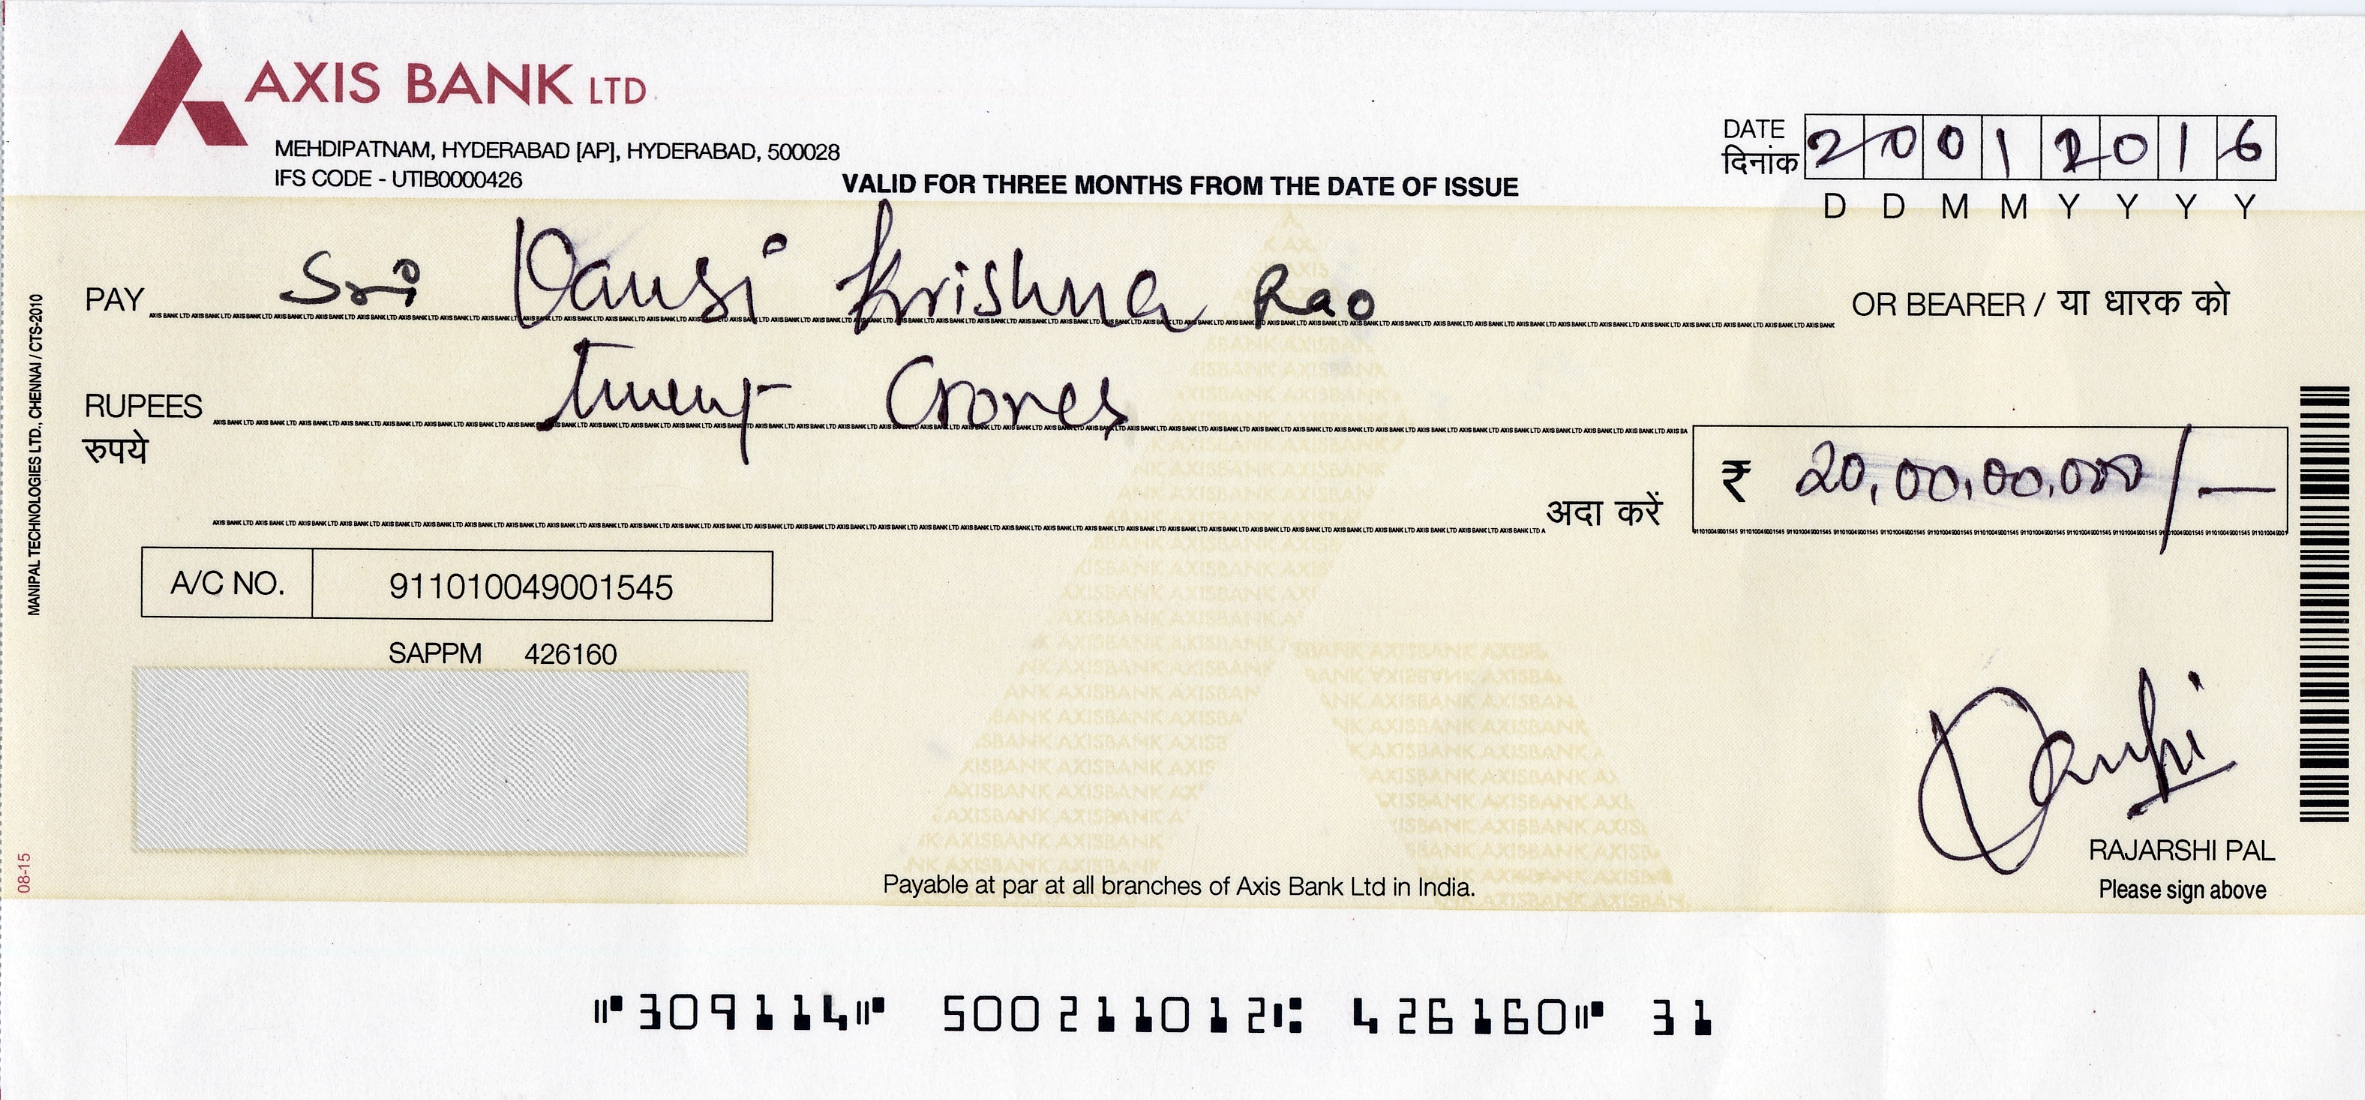 AXIS BANK LTD
MEHDIPATNAM, HYDERABAD [AP], HYDERABAD, 500028
IFS CODE - UTIB0000426
VALID FOR THREE MONTHS FROM THE DATE OF ISSUE
DATE 2 0 0 1 2 0 1 6
दिनांक
D D M M Y Y Y Y
PAY Sri Vamsi Krishna Rao OR BEARER / या धारक को
RUPEES Twenty Crores
रुपये
अदा करें ₹ 20,00,00,000/—
A/C NO. 911010049001545
SAPPM 426160
VOID
RAJARSHI PAL
Please sign above
Payable at par at all branches of Axis Bank Ltd in India.
MANIPAL TECHNOLOGIES LTD., CHENNAI / CTS-2010
08-15
⑈309114⑈ 500211012⑆ 426160⑈ 31